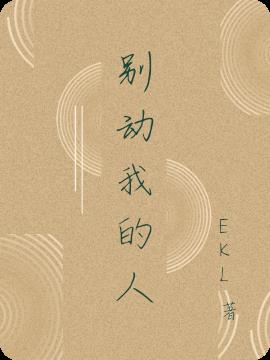 别动我的人
EKL著